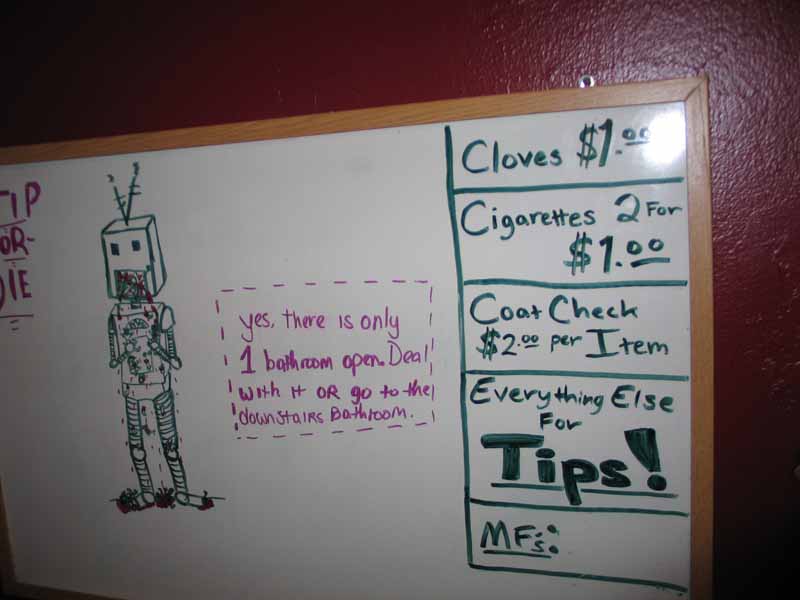 TIP
OR-
DIE
yes, there is only
1 bathroom open. Deal
with it OR go to the
downstairs Bathroom.
Cloves $1.00
Cigarettes 2 For
$1.00
Coat Check
$2.00 per Item
Everything Else
For
Tips!
MFs: